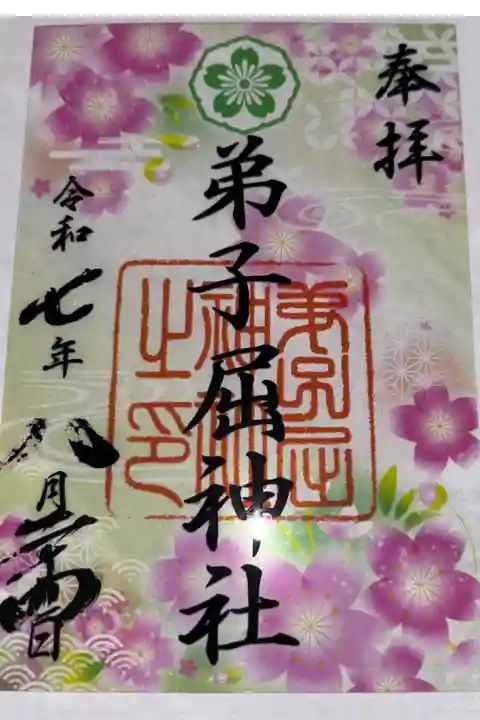 奉拝
弟子屈神社
弟子屈
神社
之印
令和七年
八月 日